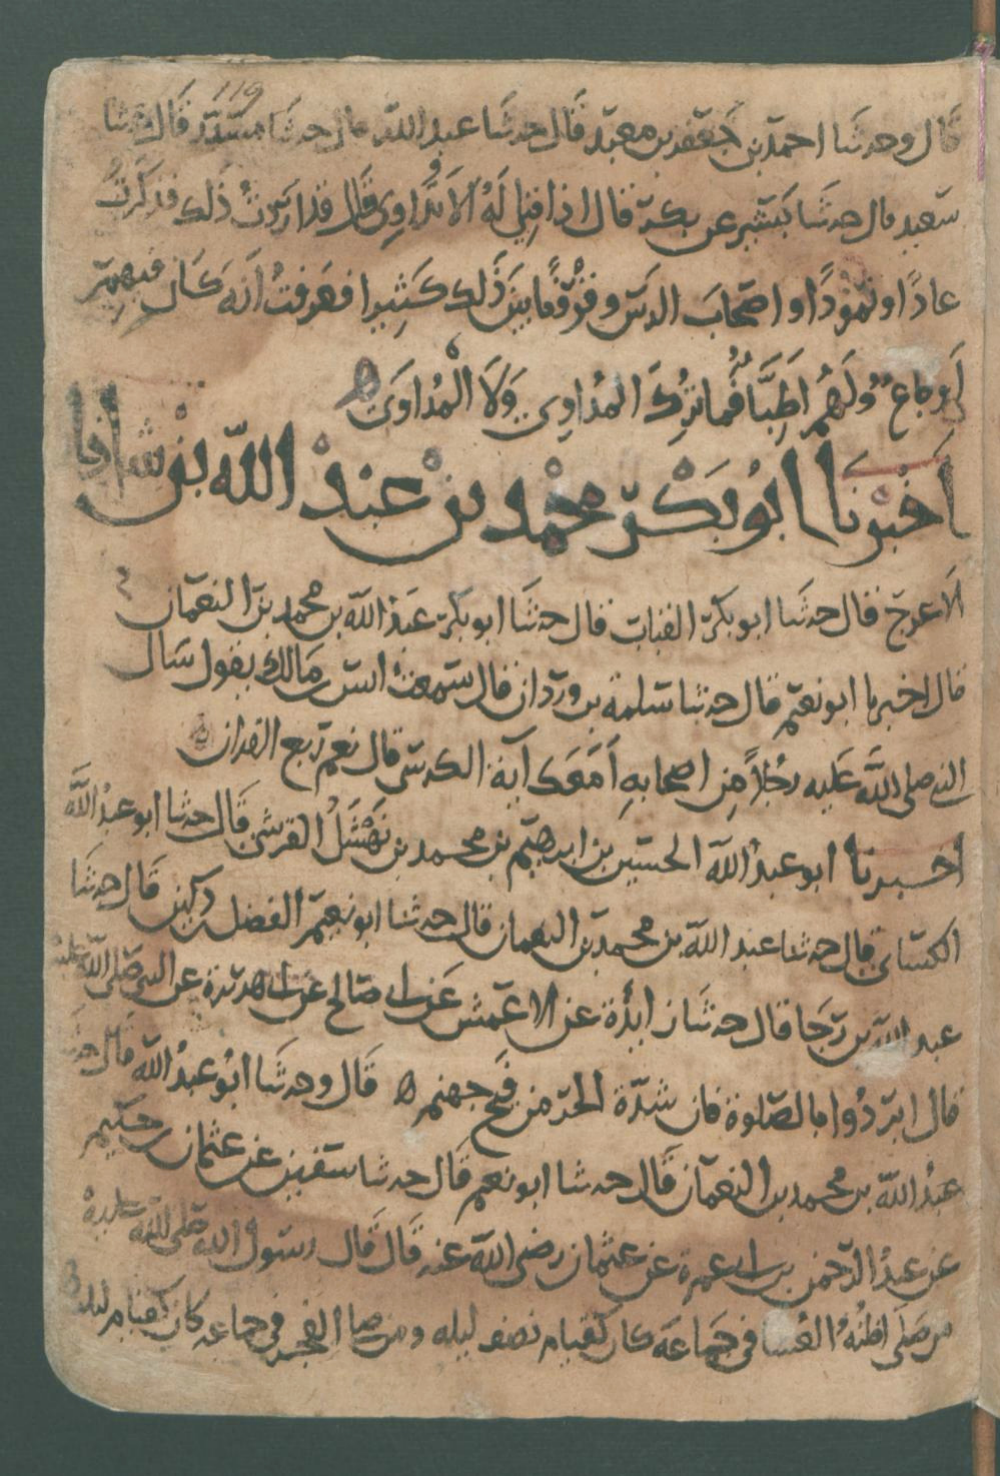 119
قال وحدثنا احمد بن جعفر بن معبد قال حدثنا عبد الله قال حدثنا مسدد قال حدثنا
سعيد قال حدثنا بشير عن بكر قال اذا قيل له الا تداوى قال قد اردت ذلك فذكرت
عادا او ثمودا او اصحاب الرس وقرونا بين ذلك كثيرا فعرفت انه كان فيهم
اوجاع ولهم اطبا فما ترك المداوي ولا المداوى ه
اخبرنا ابو بكر محمد بن عبد الله بن شاذان
الاعرج قال حدثنا ابو بكر القباب قال حدثنا ابو بكر عبد الله بن محمد بن النعمان
قال اخبرنا ابو نعيم قال حدثنا سلمة بن وردان قال سمعت انس بن مالك يقول سال
النبي صلى الله عليه رجلا من اصحابه امعك آية الكرسي قال نعم قال ربع القران
اخبرنا ابو عبد الله الحسين بن ابرهيم بن محمد بن نهشل القرشي قال حدثنا ابو عبد الله
الكسائي قال حدثنا عبد الله بن محمد بن النعمان قال حدثنا ابو نعيم الفضل بن دكين قال حدثنا
عبد الله بن رجا قال حدثنا زائدة عن الاعمش عن ابي صالح عن ابي هريرة عن النبي صلى الله عليه
قال ابردوا بالصلوة فان شدة الحر من فيح جهنم ه قال وحدثنا ابو عبد الله قال حدثنا
عبد الله بن محمد بن النعمان قال حدثنا ابو نعيم قال حدثنا سفين عن عثمان بن حكيم
عن عبد الرحمن بن ابي عمرة عن عثمان رضي الله عنه قال قال رسول الله صلى الله عليه
من صلى اظنه العشا في جماعة كان كقيام نصف ليله ومن صلا الفجر في جماعه كان كقيام ليله